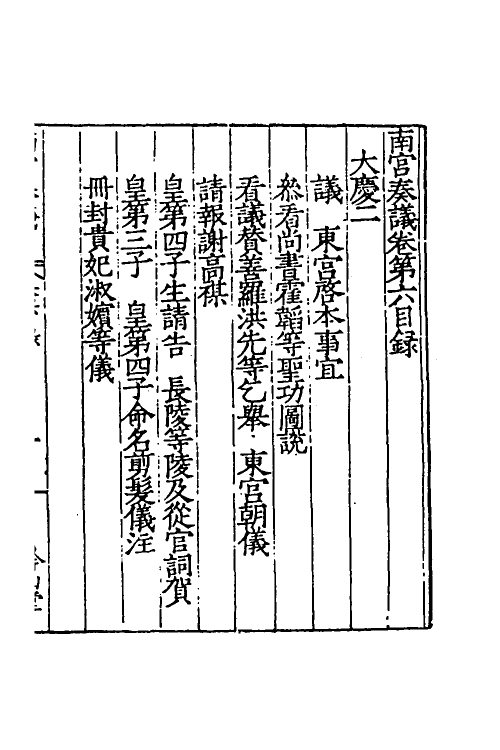 南宮奏議卷第六目録
大慶二
議　東宮啓本事宜
叅看尚書霍韜等聖功圖說
看議賛善羅洪先等乞舉　東宮朝儀
請報謝高禖
皇第四子生請告　長陵等陵及從官詞賀
皇第三子　皇第四子命名剪髮儀注
冊封貴妃淑嬪等儀